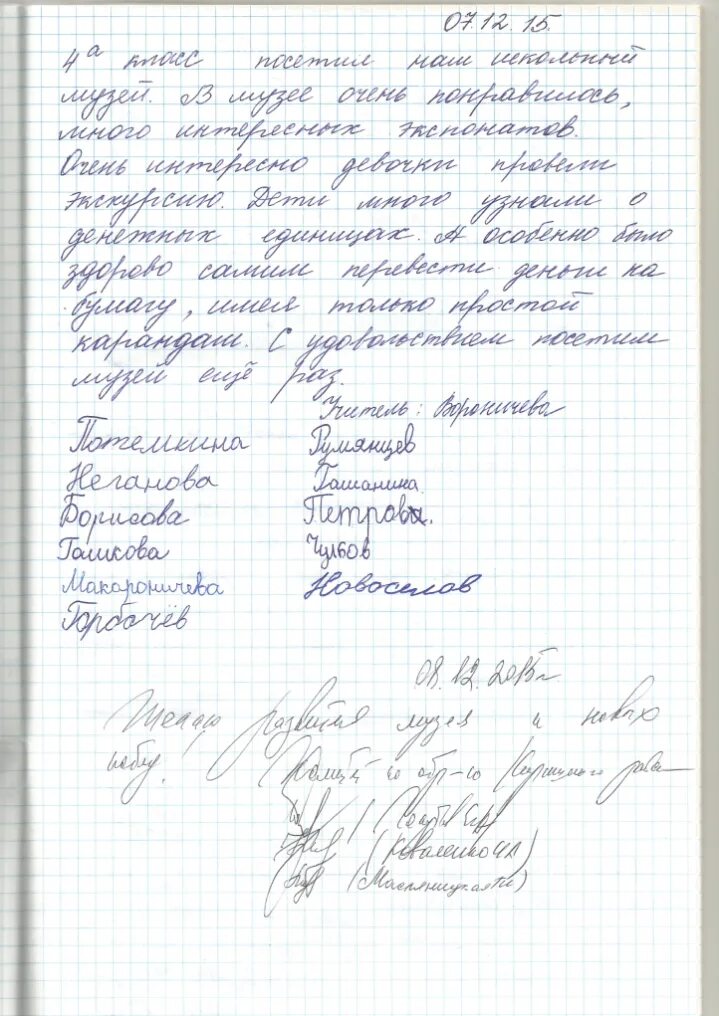 07.12.15.
4а класс посетил наш школьный
музей. В музее очень понравилось,
много интересных экспонатов.
Очень интересно девочки провели
экскурсию. Дети много узнали о
денежных единицах. А особенно было
здорово самим перевести деньги на
бумагу, имея только простой
карандаш. С удовольствием посетим
музей ещё раз.
Учитель: Вороничева
Потемкина Румянцев
Неганова Гашанина
Борисова Петрова.
Гашкова Чулков
Макароничева Новоселов
Горбачёв
08.12.2015г
Желаю развития музея и новых
побед!
Комитет по обр-ю района
(Коваленко
(Масляницкая